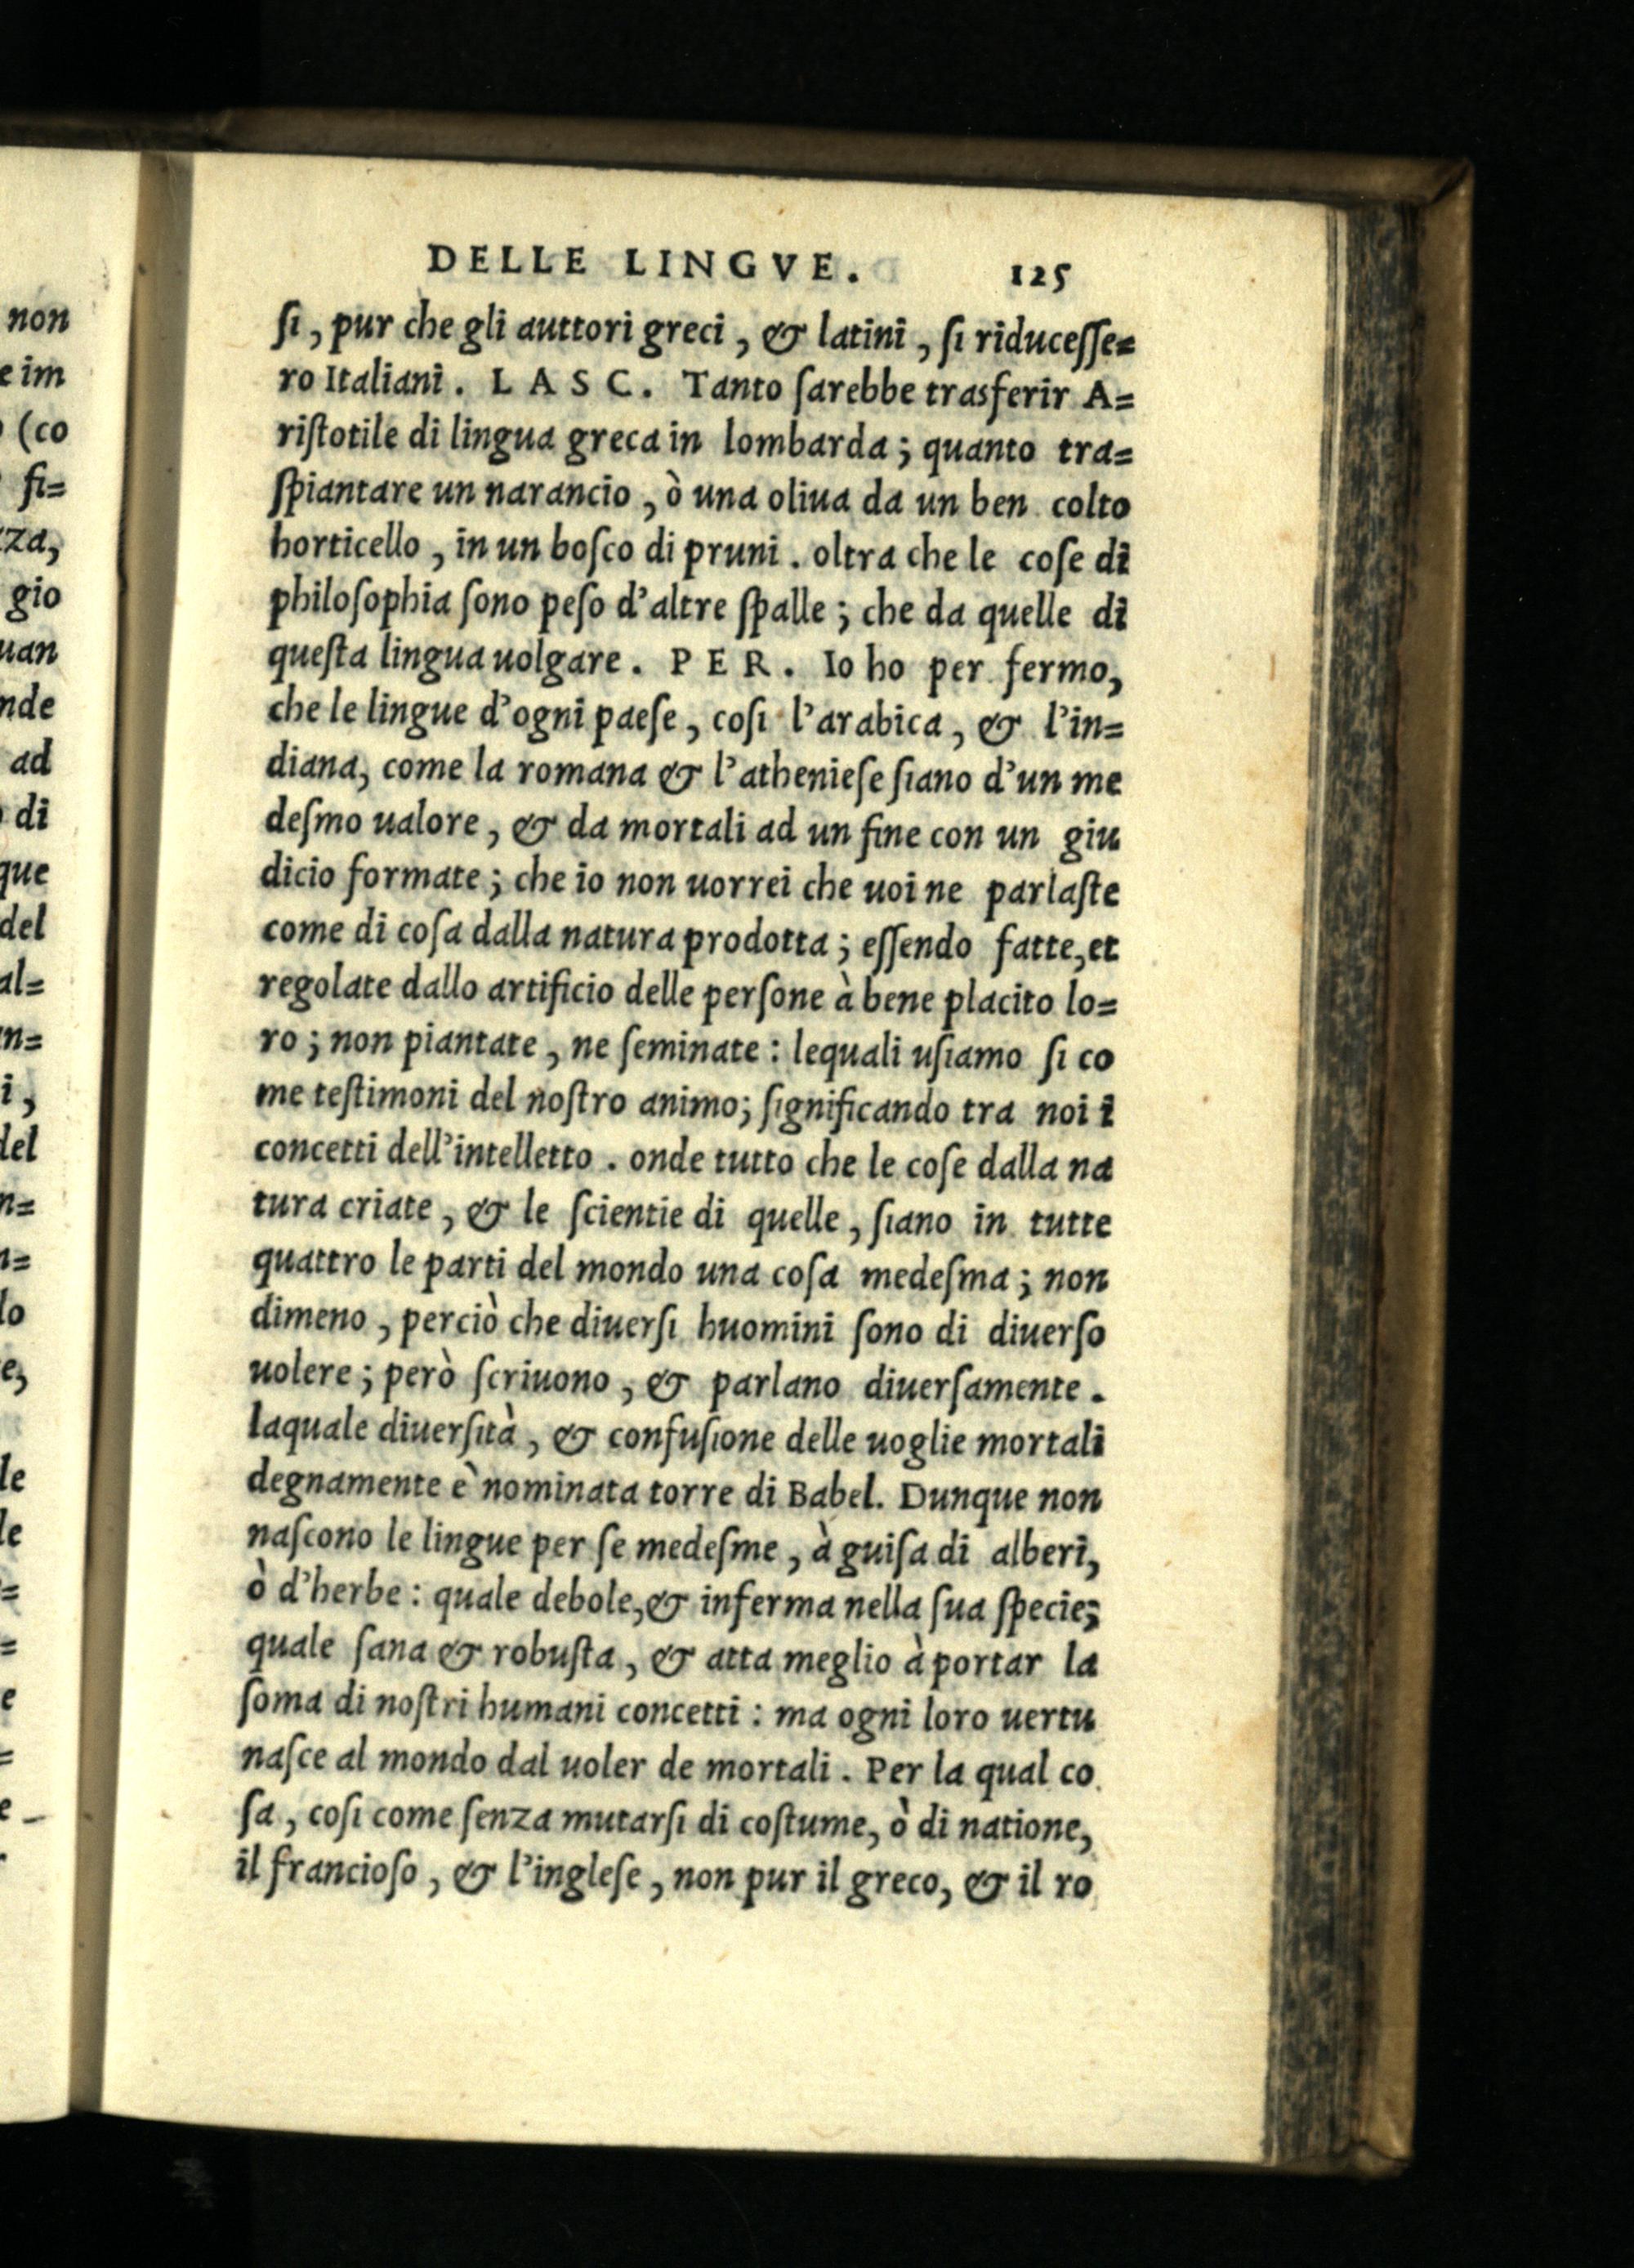 DELLE LINGVE. 125
ſi, pur che gli auttori greci, & latini, ſi riduceſſe=
ro Italiani. LASC. Tanto ſarebbe trasferir A=
riſtotile di lingua greca in lombarda; quanto tra=
ſpiantare un narancio, ò una oliua da un ben colto
horticello, in un boſco di pruni. oltra che le coſe di
philoſophia ſono peſo d'altre ſpalle; che da quelle di
queſta lingua uolgare. PER. Io ho per fermo,
che le lingue d'ogni paeſe, coſi l'arabica, & l'in=
diana, come la romana & l'athenieſe ſiano d'un me
deſmo ualore, & da mortali ad un fine con un giu
dicio formate; che io non uorrei che uoi ne parlaſte
come di coſa dalla natura prodotta; eſſendo fatte, et
regolate dallo artificio delle perſone à bene placito lo=
ro; non piantate, ne ſeminate: lequali uſiamo ſi co
me teſtimoni del noſtro animo; ſignificando tra noi i
concetti dell'intelletto. onde tutto che le coſe dalla na
tura criate, & le ſcientie di quelle, ſiano in tutte
quattro le parti del mondo una coſa medeſma; non
dimeno, perciò che diuerſi huomini ſono di diuerſo
uolere; però ſcriuono, & parlano diuerſamente.
laquale diuerſità, & confuſione delle uoglie mortali
degnamente è nominata torre di Babel. Dunque non
naſcono le lingue per ſe medeſme, à guiſa di alberi,
ò d'herbe: quale debole, & inferma nella ſua ſpecie;
quale ſana & robuſta, & atta meglio à portar la
ſoma di noſtri humani concetti: ma ogni loro uertu
naſce al mondo dal uoler de mortali. Per la qual co
ſa, coſi come ſenza mutarſi di coſtume, ò di natione,
il francioſo, & l'ingleſe, non pur il greco, & il ro